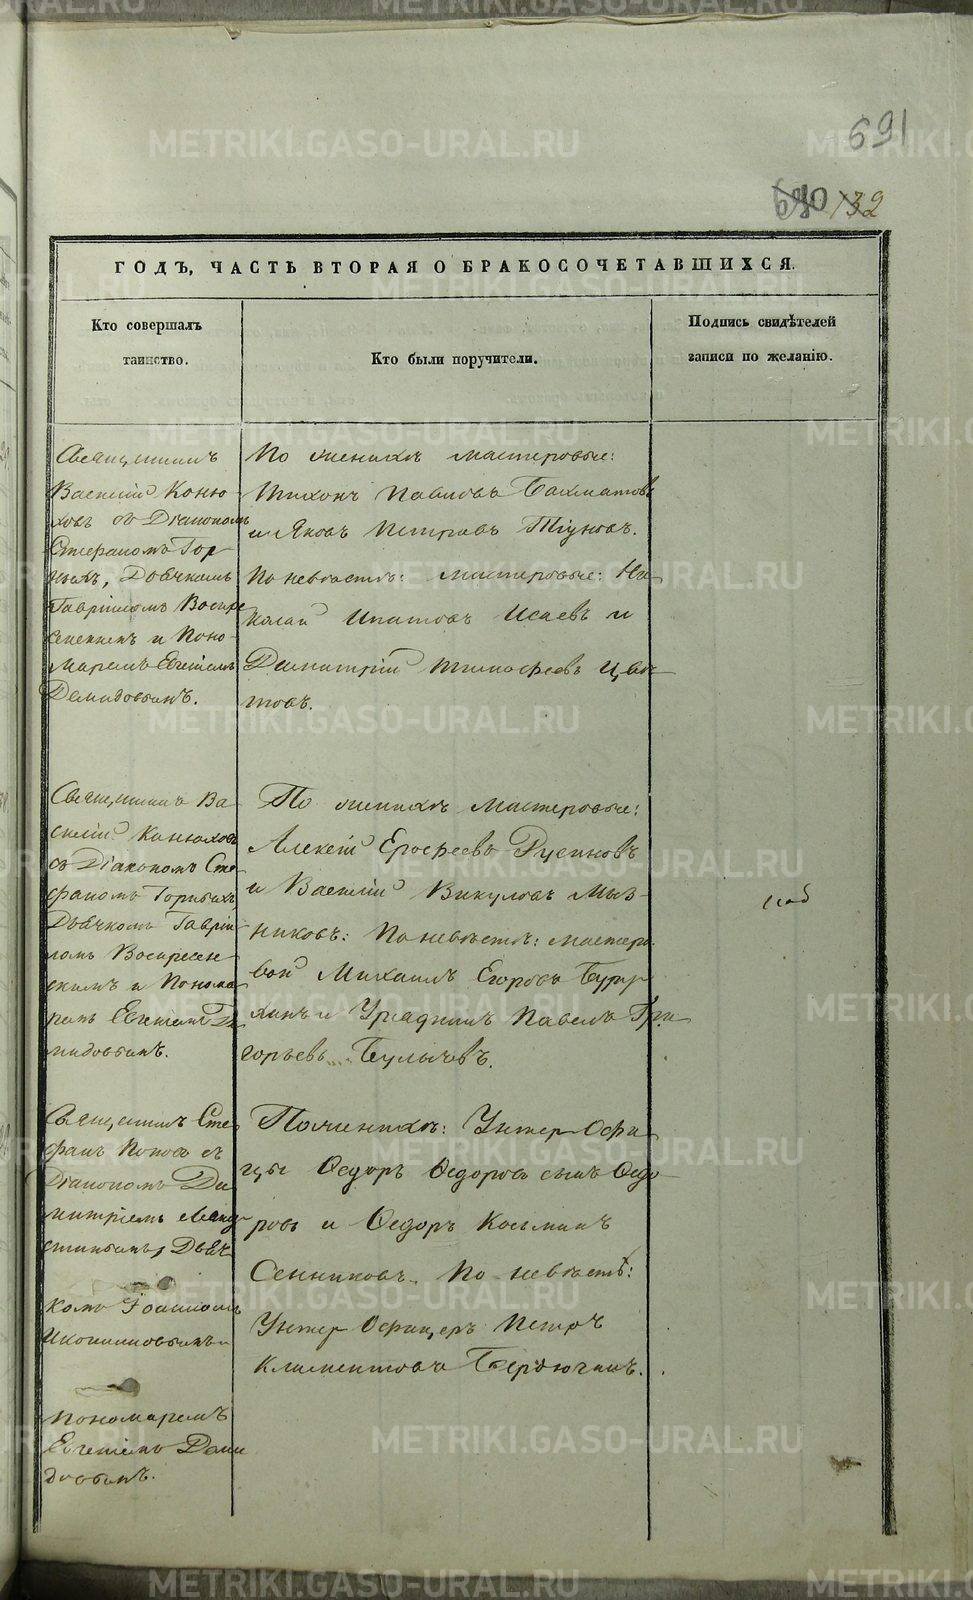 691
630 132
ГОДЪ, ЧАСТЬ ВТОРАЯ О БРАКОСОЧЕТАВШИХСЯ.
Кто совершалъ
таинство.
Кто были поручители.
Подпись свидѣтелей
записи по желанію.
Священникъ
Василій Коню-
ховъ съ Діакономъ
Стефаномъ Гор-
ныхъ, Дьячкомъ
Гавріиломъ Воскре
сенскимъ и Поно-
маремъ Евгеніемъ
Демидовымъ.
По женихѣ мастеровые:
Тихонъ Павловъ Бахматовъ
и Яковъ Петровъ Тіуновъ.
По невѣстѣ: мастеровые: Ни-
колай Ипатовъ Исаевъ и
Димитрій Тимофеевъ Цвѣ-
товъ.
Священникъ Ва-
силій Конюховъ
съ Діакономъ Сте-
фаномъ Горныхъ
Дьячкомъ Гаврі-
ломъ Воскресен-
скимъ и Понома-
ремъ Евгеніемъ Де-
мидовымъ.
По женихѣ мастеровые:
Алексій Ерофеевъ Русиновъ
и Василій Викуловъ Мыз-
никовъ: По невѣстѣ: мастеро-
вой Михаилъ Егоровъ
и Урядникъ Павелъ Гри-
горьевъ Булычевъ.
Священникъ Сте-
фанъ Поповъ съ
Діакономъ Ди-
митріемъ
Дьяч-
комъ Іоанномъ
и
Пономаремъ
Евгеніемъ Деми
довымъ.
По женихѣ: Унтеръ Офи-
церы Ѳедоръ Ѳедоровъ сынъ Ѳедо-
ровъ и Ѳедоръ Козьминъ
Сенниковъ. По невѣстѣ:
Унтеръ Офицеръ Петръ
Климентовъ Бердючинъ.
METRIKI.GASO-URAL.RU